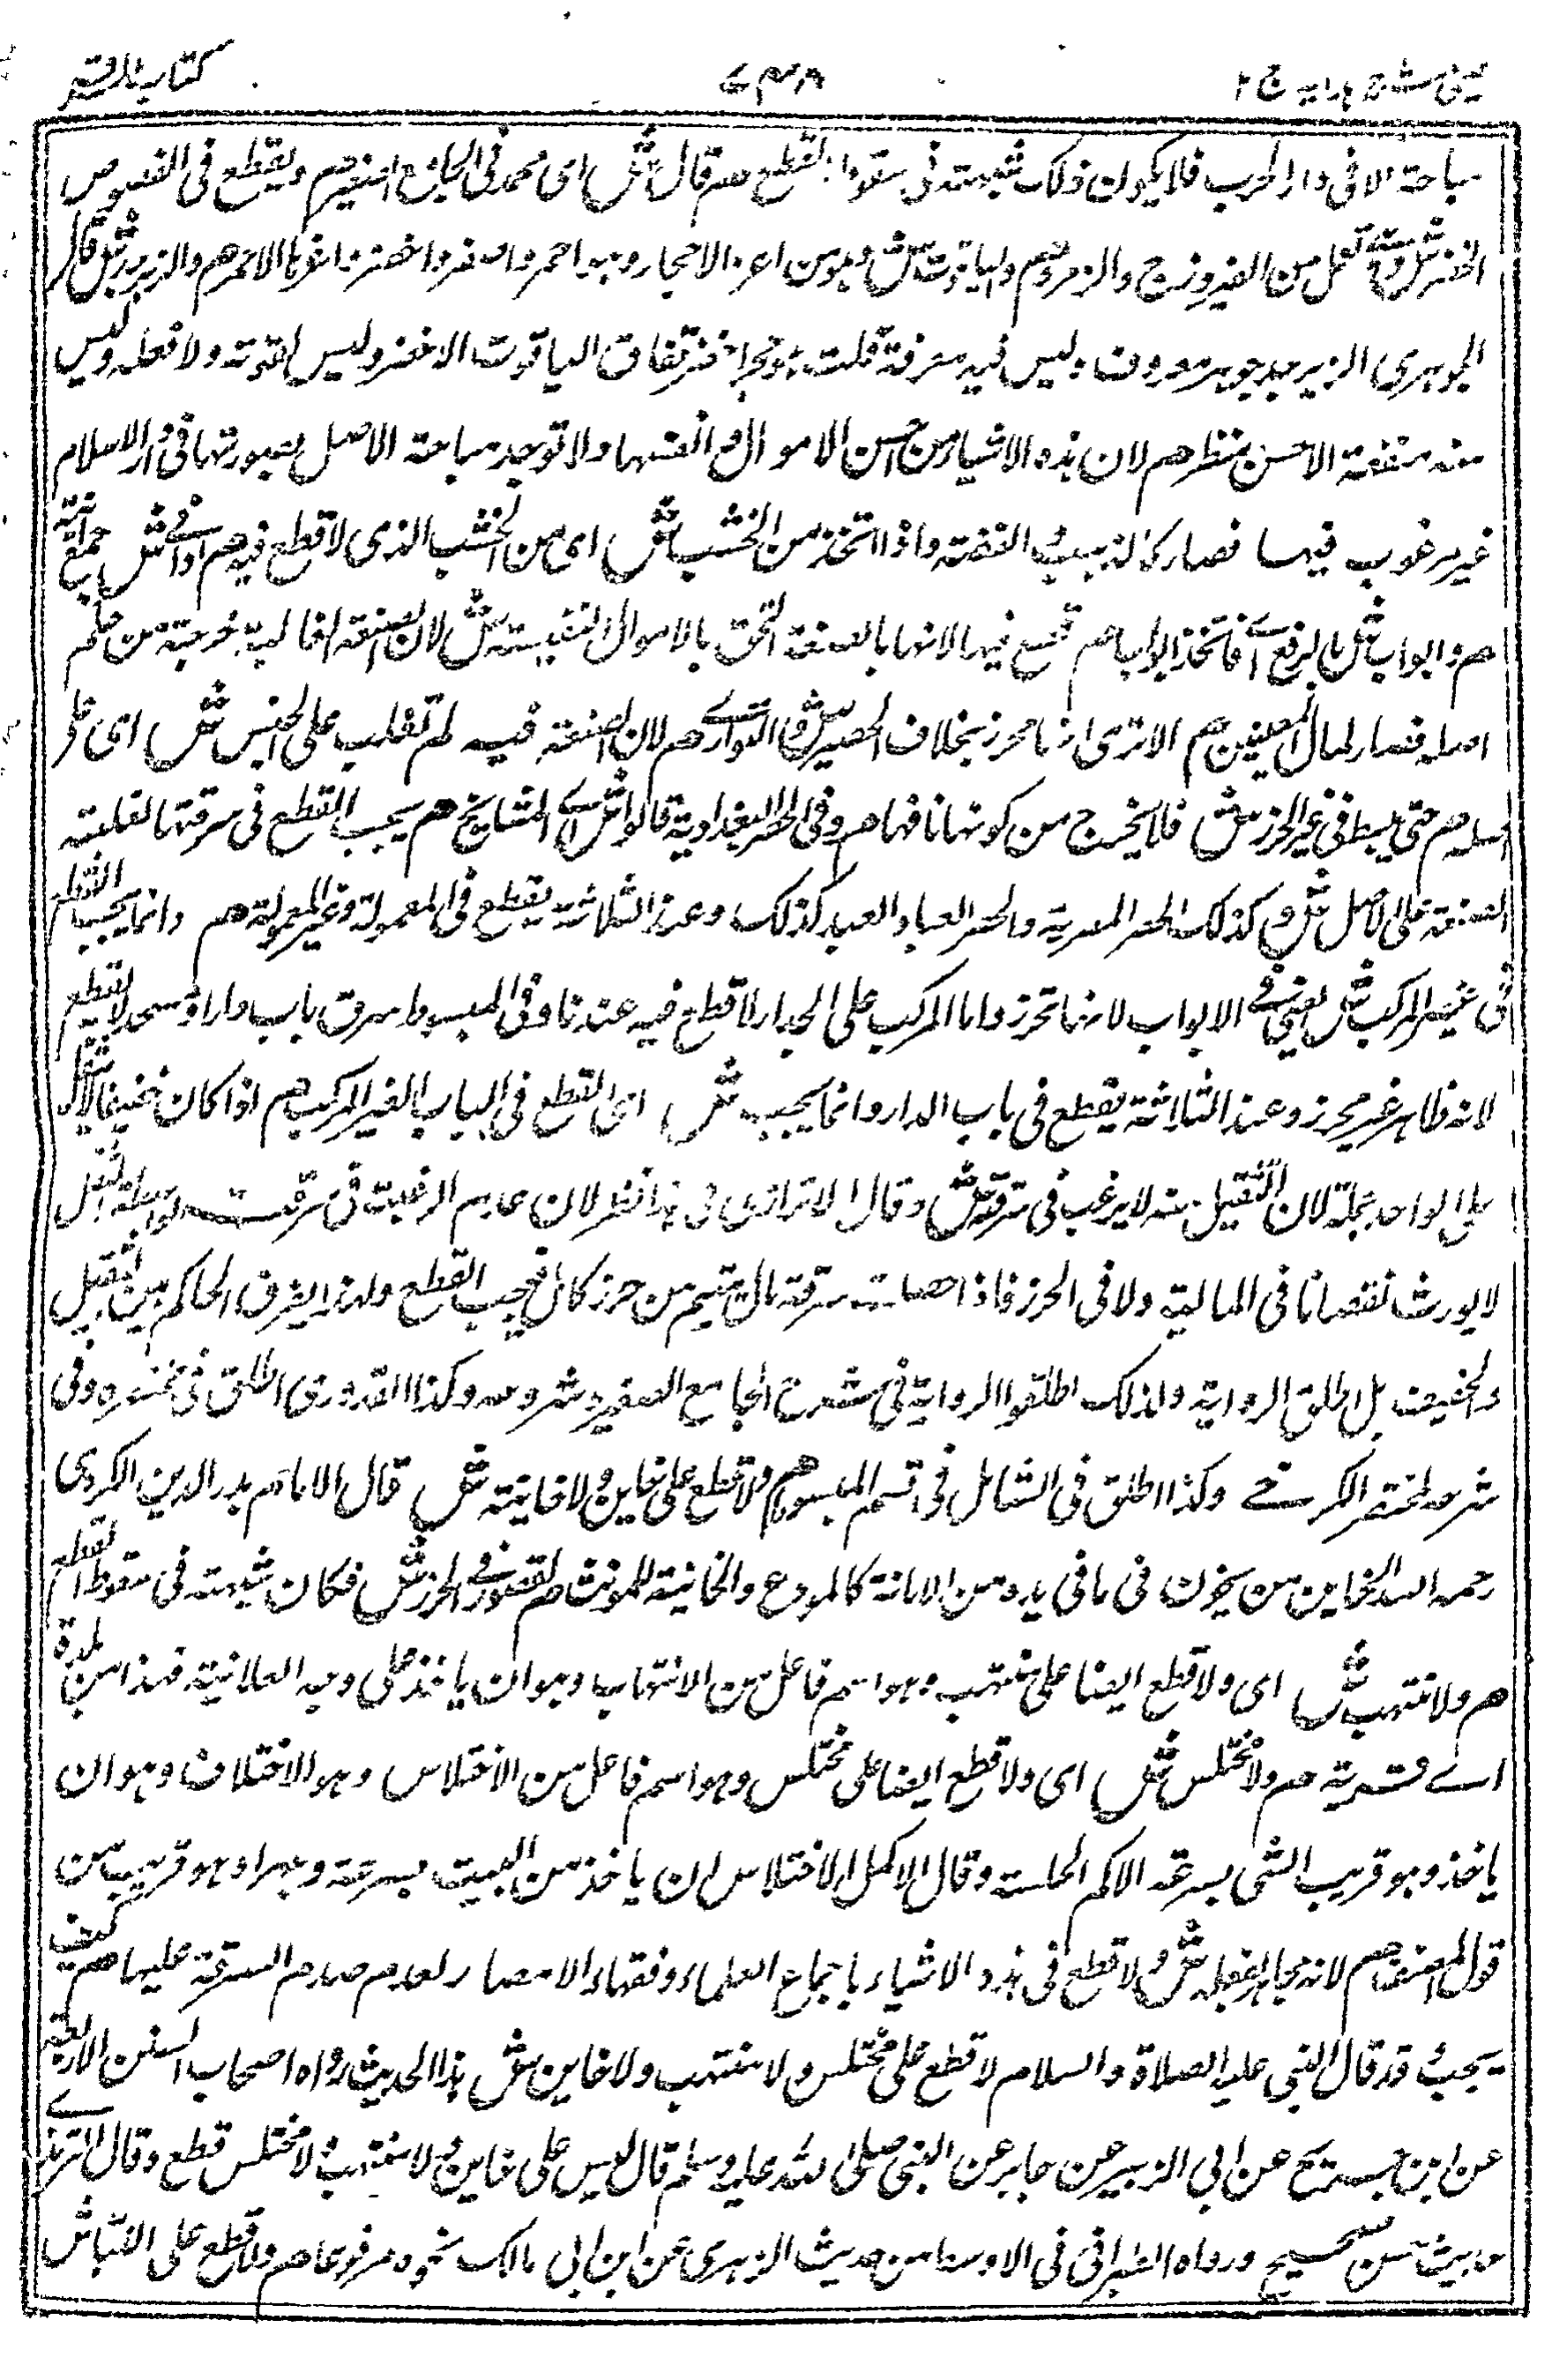 عینی شرح ہدایہ ج ۲ ۷۳۸ کتاب السرقة
مباحة الا فی دار الحرب فلا یکون ذلک شبهة فی سقوط القطع م قال ش ای محمد فی الجامع الصغیر م ویقطع فی الفصوص
الخضر ش وهی تعمل من الفیروزج والزمرد م والیاقوت ش وهو من اعز الاحجار وهو احمر واصفر واخضر واغربها الاحمر م والزبرجد ش قال
الجوهری الزبرجد جوهر معروف ولیس فیه معرفة قلت هو حجر اخضر شفاف الیاقوت الاخضر ولیس لقوته ولا فعله ولیس
منه منفعة الاحسن منظر م لان هذه الاشیاء من احسن الاموال وانفسها ولا توجد مباحة الاصل بصورتها فی دار الاسلام
غیر مرغوب فیها فصار کالذهب والفضة واذا اتخذ من الخشب ش ای من الخشب الذی لا قطع فیه م اوانی ش جمع آنیة
م وابواب ش بالرفع ای فاتخذ ابوابا م قطع فیها لانها بالصنعة التحق بالاموال النفیسة ش لان الصنعة الغالبة خرجته من حکم
اصله فصار لمال المعینین م الا تری انها محرز بخلاف الحصیر ش والبواری م لان الصنعة فیه لم تغلب علی الجنس ش ای علی
اصله م حتی یبسط فی غیر الحرز ش فلا یخرج من کونها تافها م وفی الحصر البغدادیة قالوا ش ای المشایخ م یجب القطع فی سرقتها لغلبة
الصنعة علی الاصل ش وکذلک الحصر المصریة والحصر العبادانیة کذلک وعند الثلاثة یقطع فی المعمولة وغیر المعمولة م وانما یجب القطع
فی غیر المرکب ش یعنی فی الابواب لانها تحرز واما المرکب علی الجدار لا قطع فیه عندنا وفی المبسوط سرق باب دار او مسجد لا یقطع
لانه ظاهر غیر محرز وعند الثلاثة یقطع فی باب الدار وانما یجب ش ای القطع فی الباب الغیر المرکب م اذا کان خفیفا لا یثقل
علی الواحد حمله لان الثقیل منه لا یرغب فی سرقته ش وقال الاترازی فی هذا نظر لان عدم الرغبة فی سرقته بواسطة الثقل
لا یورث نقصانا فی المالیة ولا فی الحرز فاذا حصلت سرقة مال متقوم من حرز کامل فیجب القطع ولهذا لم یفرق الحاکم بین الثقیل
والخفیف بل اطلق الروایة ولذلک اطلقوا الروایة فی شرح الجامع الصغیر وشروحه وکذا القدوری اطلق فی مختصره وفی
شرحه لمختصر الکرخی وکذا اطلق فی الشامل فی قسم المبسوط م ولا قطع علی خاین ولا خاینة ش قال الامام بدر الدین الکردری
رحمه الله الخاین من یخون فی ما فی یده من الامانة کالمودع والخاینة للمونث م لقصور فی الحرز ش فکان شبهة فی سقوط القطع
م ولا منتهب ش ای ولا قطع ایضا علی منتهب وهو اسم فاعل من الانتهاب وهو ان یاخذ علی وجه العلانیة قهرا من بلدة
ای قریة م ولا مختلس ش ای ولا قطع ایضا علی مختلس وهو اسم فاعل من الاختلاس وهو الاختلاف وهو ان
یاخذ وهو قریب الشی بسرعة الاکم الخلسة وقال الاکمل الاختلاس ان یاخذ من البیت بسرعة وجهرا وهو قریب من
قول المصنف م لانه مجاهر بفعله ش ولا قطع فی هذه الاشیاء باجماع العلماء وفقهاء الامصار لعدم صدم السرقة علیها م کیف
یجب وقد قال النبی علیه الصلاة والسلام لا قطع علی مختلس ولا منتهب ولا خاین ش هذا الحدیث رواه اصحاب السنن الاربعة
عن ابن جریج عن ابی الزبیر عن جابر عن النبی صلی الله علیه وسلم قال لیس علی خاین ولا منتهب ولا مختلس قطع وقال الترمذی
حدیث حسن صحیح ورواه الطبرانی فی الاوسط من حدیث الزهری عن ابن ابی مالک نحوه مرفوعا م ولا قطع علی النباش